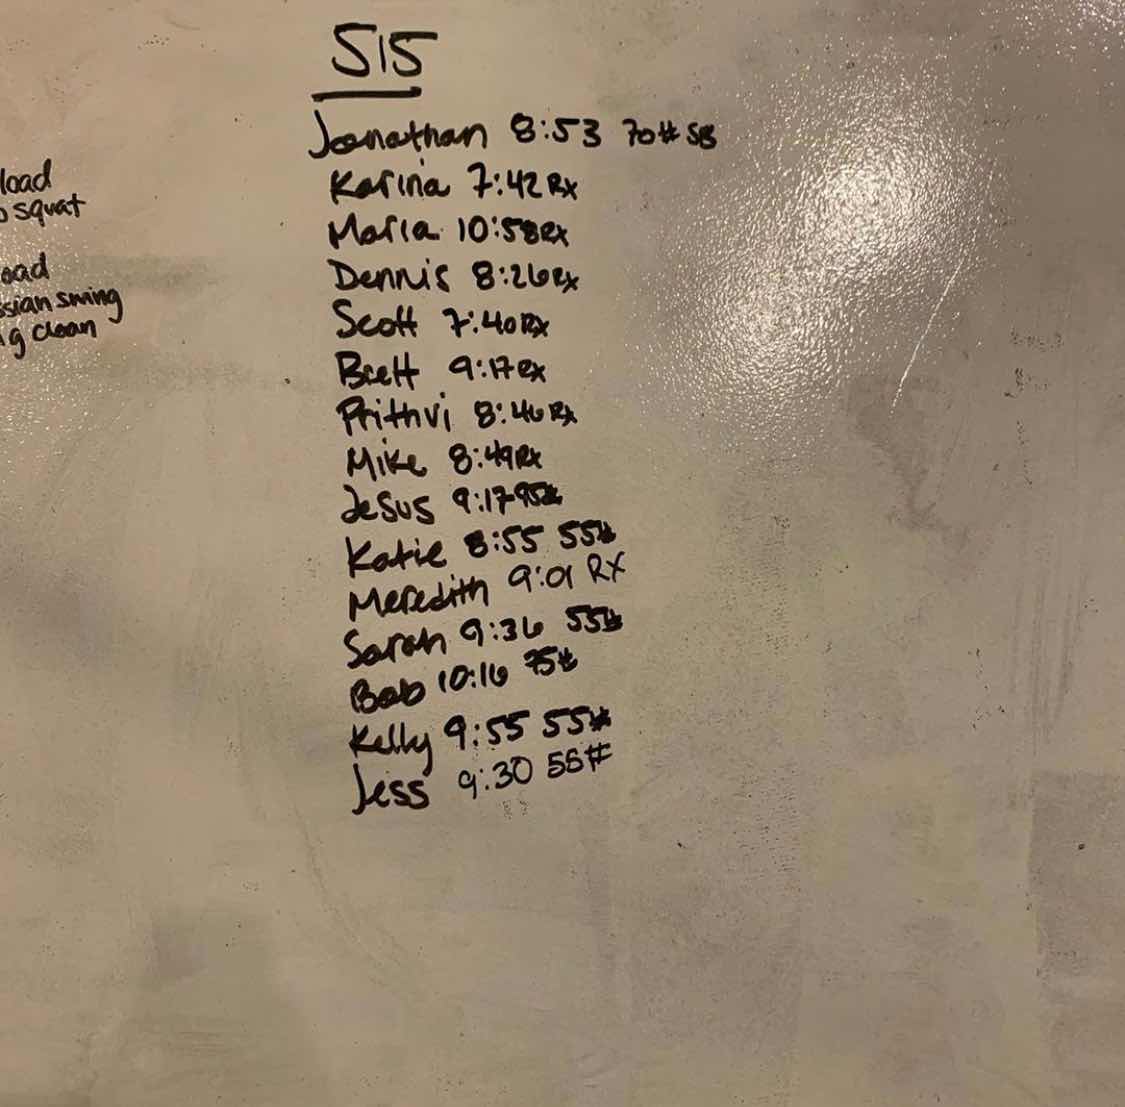 load
squat
oad
ssian swing
g clean
515
Jonathan 8:53 70# SB
Karina 7:42 Rx
Maria 10:58 Rx
Dennis 8:26 Rx
Scott 7:40 Rx
Brett 9:17 Rx
Prithvi 8:46 Rx
Mike 8:49 Rx
Jesus 9:17 95#
Katie 8:55 55#
Meredith 9:01 RX
Sarah 9:36 55#
Bob 10:16 75#
Kelly 9:55 55#
Jess 9:30 55#